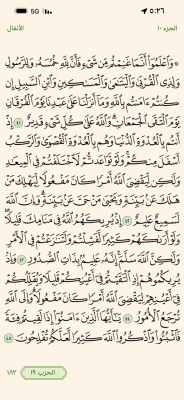 5G ٥:٢٦
الجزء ١٠ الأنفال
۞ وَٱعْلَمُوٓا۟ أَنَّمَا غَنِمْتُم مِّن شَىْءٍ فَأَنَّ لِلَّهِ خُمُسَهُۥ وَلِلرَّسُولِ
وَلِذِى ٱلْقُرْبَىٰ وَٱلْيَتَـٰمَىٰ وَٱلْمَسَـٰكِينِ وَٱبْنِ ٱلسَّبِيلِ إِن
كُنتُمْ ءَامَنتُم بِٱللَّهِ وَمَآ أَنزَلْنَا عَلَىٰ عَبْدِنَا يَوْمَ ٱلْفُرْقَانِ
يَوْمَ ٱلْتَقَى ٱلْجَمْعَانِ وَٱللَّهُ عَلَىٰ كُلِّ شَىْءٍ قَدِيرٌ ٤١ إِذْ
أَنتُم بِٱلْعُدْوَةِ ٱلدُّنْيَا وَهُم بِٱلْعُدْوَةِ ٱلْقُصْوَىٰ وَٱلرَّكْبُ
أَسْفَلَ مِنكُمْ وَلَوْ تَوَاعَدتُّمْ لَٱخْتَلَفْتُمْ فِى ٱلْمِيعَـٰدِ
وَلَـٰكِن لِّيَقْضِىَ ٱللَّهُ أَمْرًا كَانَ مَفْعُولًا لِّيَهْلِكَ مَنْ
هَلَكَ عَنۢ بَيِّنَةٍ وَيَحْيَىٰ مَنْ حَىَّ عَنۢ بَيِّنَةٍ وَإِنَّ ٱللَّهَ
لَسَمِيعٌ عَلِيمٌ ٤٢ إِذْ يُرِيكَهُمُ ٱللَّهُ فِى مَنَامِكَ قَلِيلًا
وَلَوْ أَرَىٰكَهُمْ كَثِيرًا لَّفَشِلْتُمْ وَلَتَنَـٰزَعْتُمْ فِى ٱلْأَمْرِ
وَلَـٰكِنَّ ٱللَّهَ سَلَّمَ إِنَّهُۥ عَلِيمٌۢ بِذَاتِ ٱلصُّدُورِ ٤٣ وَإِذْ
يُرِيكُمُوهُمْ إِذِ ٱلْتَقَيْتُمْ فِىٓ أَعْيُنِكُمْ قَلِيلًا وَيُقَلِّلُكُمْ
فِىٓ أَعْيُنِهِمْ لِيَقْضِىَ ٱللَّهُ أَمْرًا كَانَ مَفْعُولًا وَإِلَى ٱللَّهِ
تُرْجَعُ ٱلْأُمُورُ ٤٤ يَـٰٓأَيُّهَا ٱلَّذِينَ ءَامَنُوٓا۟ إِذَا لَقِيتُمْ فِئَةً
فَٱثْبُتُوا۟ وَٱذْكُرُوا۟ ٱللَّهَ كَثِيرًا لَّعَلَّكُمْ تُفْلِحُونَ ٤٥
الحزب ١٩ ١٨٢